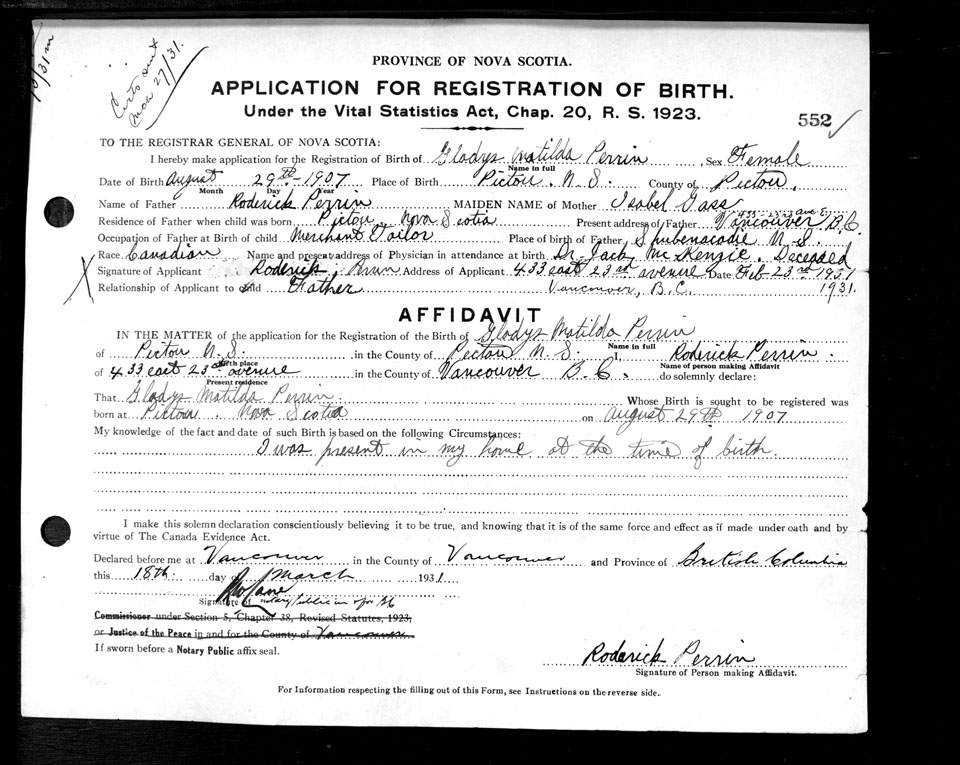 PROVINCE OF NOVA SCOTIA.
APPLICATION FOR REGISTRATION OF BIRTH.
Under the Vital Statistics Act, Chap. 20, R. S. 1923.
552
TO THE REGISTRAR GENERAL OF NOVA SCOTIA:
I hereby make application for the Registration of Birth of Gladys Matilda Perrin Sex Female
Name in full
Date of Birth August 29th 1907 Place of Birth Pictou. N. S. County of Pictou.
Month Day Year
Name of Father Roderick Perrin MAIDEN NAME of Mother Isabel Gass
Residence of Father when child was born Pictou. Nova Scotia Present address of Father 433-23rd ave E. Vancouver B.C.
Occupation of Father at Birth of child Merchant Tailor Place of birth of Father Shubenacadie N.S.
Race Canadian Name and present address of Physician in attendance at birth Dr. Jack McKenzie. Deceased
Signature of Applicant Roderick Perrin Address of Applicant 433 east 23rd avenue Date Feb 23rd 1931
Relationship of Applicant to child Father Vancouver, B.C. 1931.
AFFIDAVIT
IN THE MATTER of the application for the Registration of the Birth of Gladys Matilda Perrin
Name in full
of Pictou N.S. in the County of Pictou N.S. I, Roderick Perrin.
Birth place Name of person making Affidavit
of 433 east 23rd avenue in the County of Vancouver B.C. do solemnly declare:
Present residence
That Gladys Matilda Perrin. Whose Birth is sought to be registered was
born at Pictou. Nova Scotia on August 29th 1907
My knowledge of the fact and date of such Birth is based on the following Circumstances:
I was present in my home at the time of birth.
I make this solemn declaration conscientiously believing it to be true, and knowing that it is of the same force and effect as if made under oath and by
virtue of The Canada Evidence Act.
Declared before me at Vancouver in the County of Vancouver and Province of British Columbia
this 18th. day of March 1931
Signature of notary public in
Commissioner under Section 5, Chapter 38, Revised Statutes, 1923,
or Justice of the Peace in and for the County of Vancouver
If sworn before a Notary Public affix seal.
Roderick Perrin
Signature of Person making Affidavit.
For Information respecting the filling out of this Form, see Instructions on the reverse side.